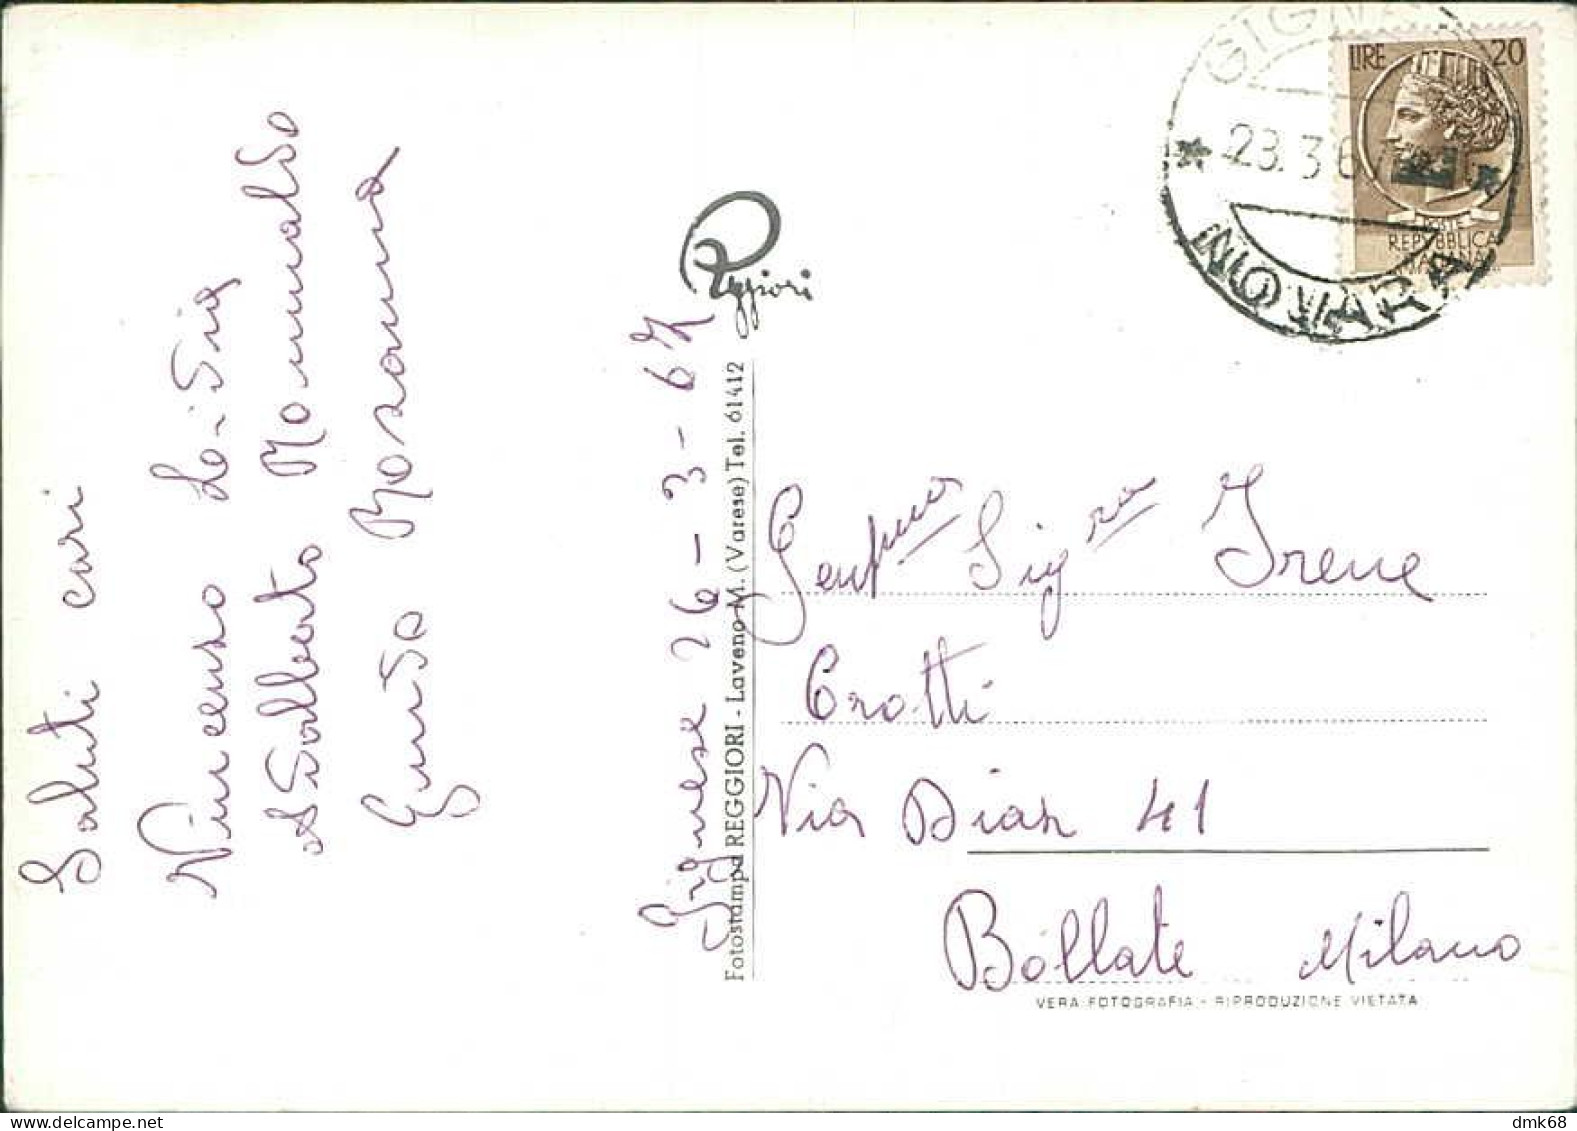 Saluti cari
Vincenzo Lidia
Adalberto Romualdo
Guido Rosanna
Gignese 26-3-67
Reggiori
Fotostampa REGGIORI - Laveno M. (Varese) Tel. 61412
GIGNESE
23.3.67
NOVARA
LIRE 20
POSTE
REPVBBLICA
ITALIANA
Gent.ma Sig.ra Irene
Crotti
Via Diaz 41
Bollate Milano
VERA FOTOGRAFIA - RIPRODUZIONE VIETATA
dmk68